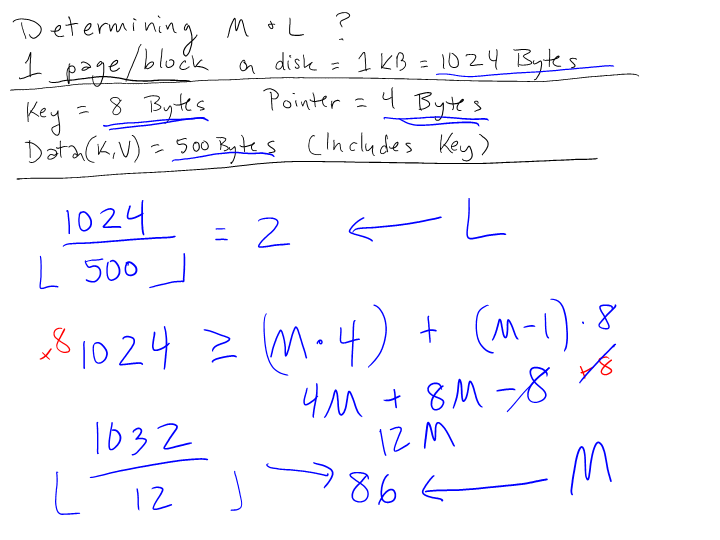 Determining M & L ?
1 page/block on disk = 1 KB = 1024 Bytes
Key = 8 Bytes Pointer = 4 Bytes
Data(K,V) = 500 Bytes (Includes Key)
⌊1024 / 500⌋ = 2 ← L
+8 1024 ≥ (M·4) + (M-1)·8
4M + 8M - 8 +8
12M
⌊1032 / 12⌋ → 86 ← M